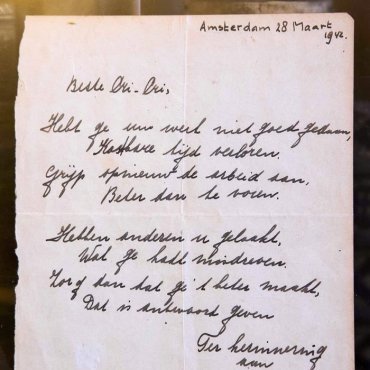 Amsterdam 28 Maart
1942.
Beste Cri-Cri,
Hebt ge uw werk niet goed gedaan,
Kostbare tijd verloren.
Grijp opnieuw de arbeid aan,
Beter dan te voren.
Hebben anderen u gelaakt,
Wat ge hadt misdreven.
Zorg dan dat ge 't beter maakt,
Dat is antwoord geven
Ter herinnering
aan